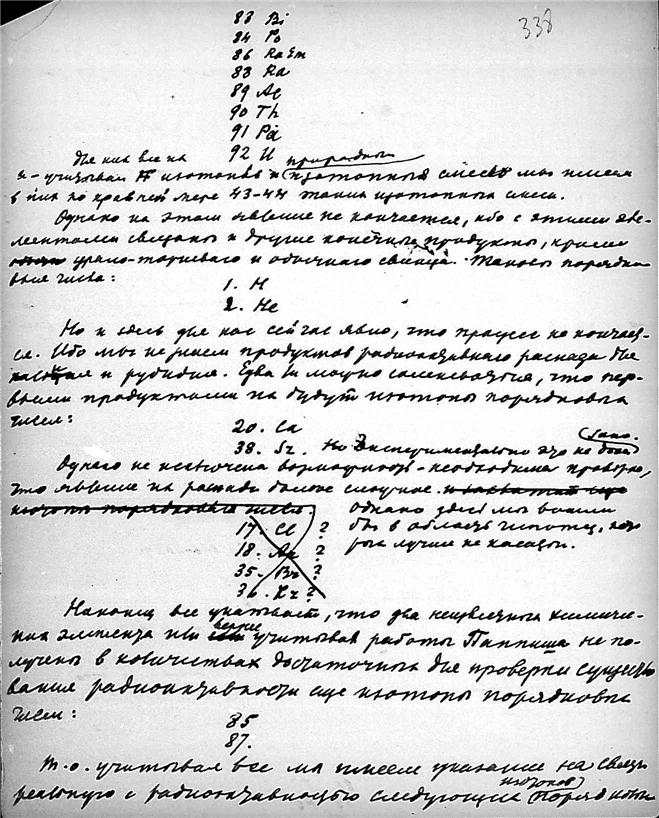 338
83 Bi
84 Po
86 RaEm
88 Ra
89 Ac
90 Th
91 Pa
92 U
природных
учитывая изотопных смесей мы имеем
в них по крайней мере 43-44 таких изотопных смеси.
Однако на этом явление не кончается, ибо с этими эле-
ментами связаны и другие конечные продукты, кроме
урано-ториевого и обычного свинца. Таковы порядко-
вые числа:
1. H
2. He
Но и здесь для нас сейчас явно, что процесс не кончает-
ся. Ибо мы не знаем продуктов радиоактивного распада для
калия и рубидия. Едва ли можно сомневаться, что пер-
выми продуктами их будут изотопы порядковых
чисел:
20. Ca
38. Sr. Но экспериментально это не дока-
зано.
Однако не исключена вероятность - необходима проверка,
что явление их распада более сложное.
изотопы порядковых чисел.
однако здесь мы вошли
17. Cl ?
бы в область гипотез, кото-
18. Ar ?
рых лучше не касаться.
35. Br ?
36. Kr ?
Наконец все указывает, что два неизвестных химиче-
ских элемента или вернее учитывая работы Паппиша не по-
лучены в количествах достаточных для проверки существо-
вания радиоактивности еще изотопы порядковых
чисел:
85
87.
Т.о. учитывая все мы имеем указание на связь
реальную с радиоактивностью следующих изотопов порядковых